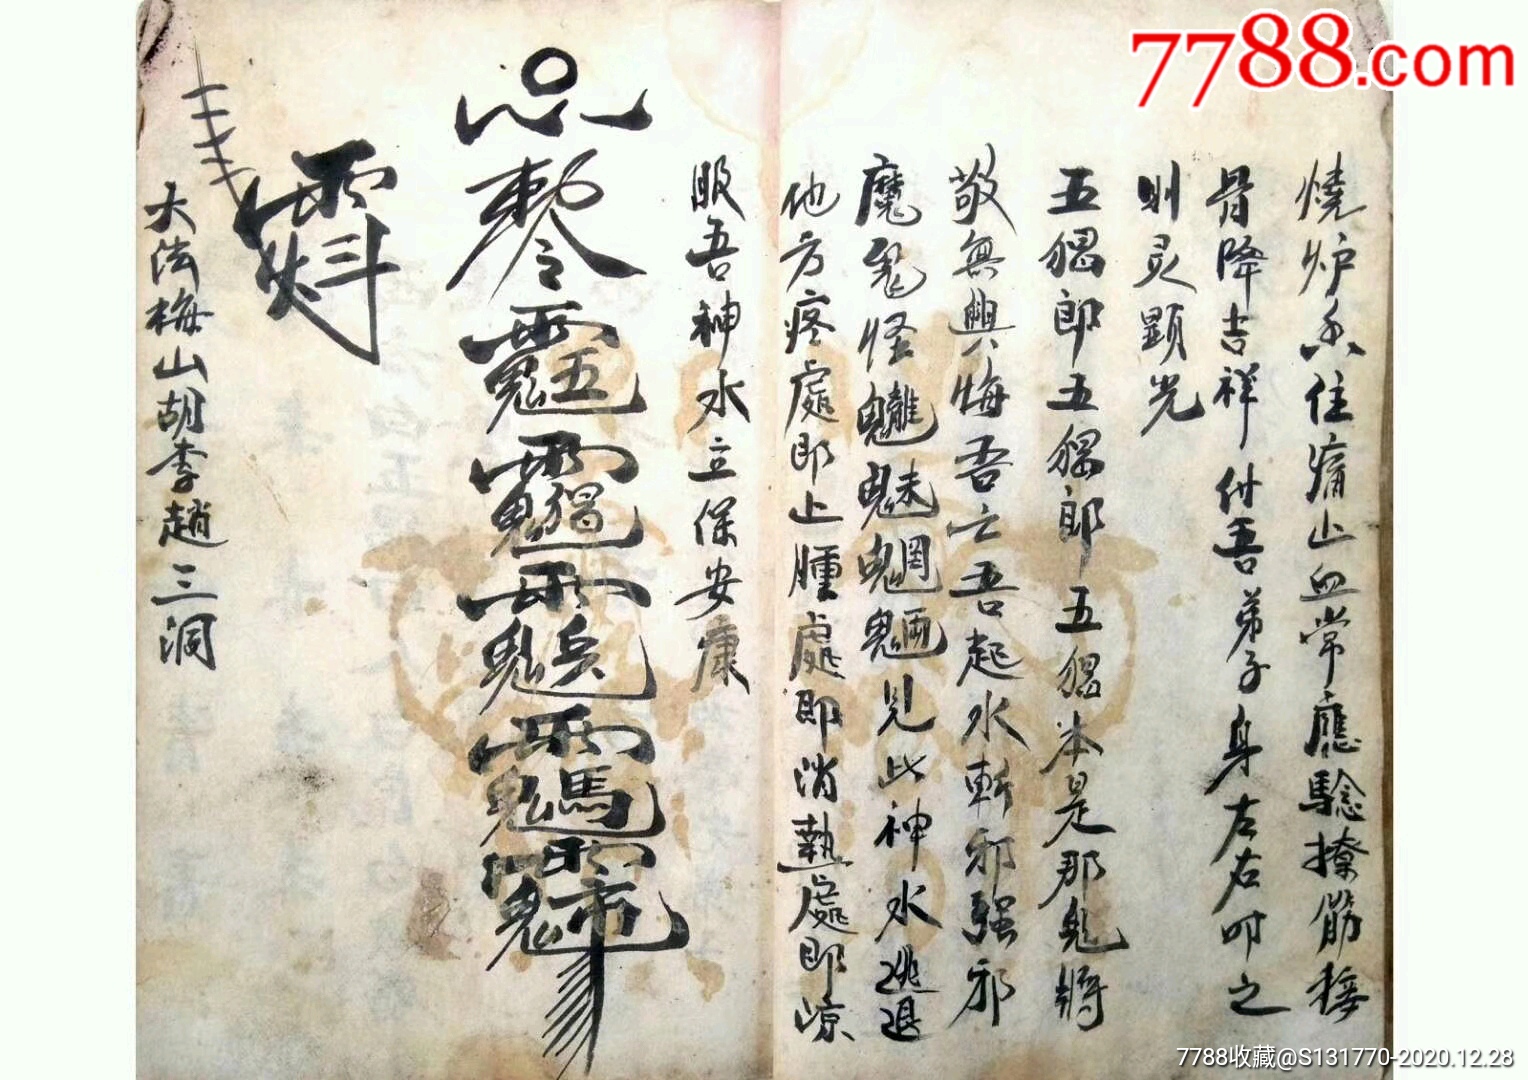 7788.com
燒炉香住痛止血常應驗撩筋接
骨降吉祥付吾弟子身左右叩之
则灵顕光
五猖郎五猖郎五猖本是那鬼將
敬無興悔吾亡吾起水斬邪强邪
魔鬼怪魑魅魍魎見此神水逃退
他方疼處即止腫處即消熱處即凉
服吾神水立保安康
敕令
大法梅山胡李趙三洞
7788收藏@S131770-2020.12.28